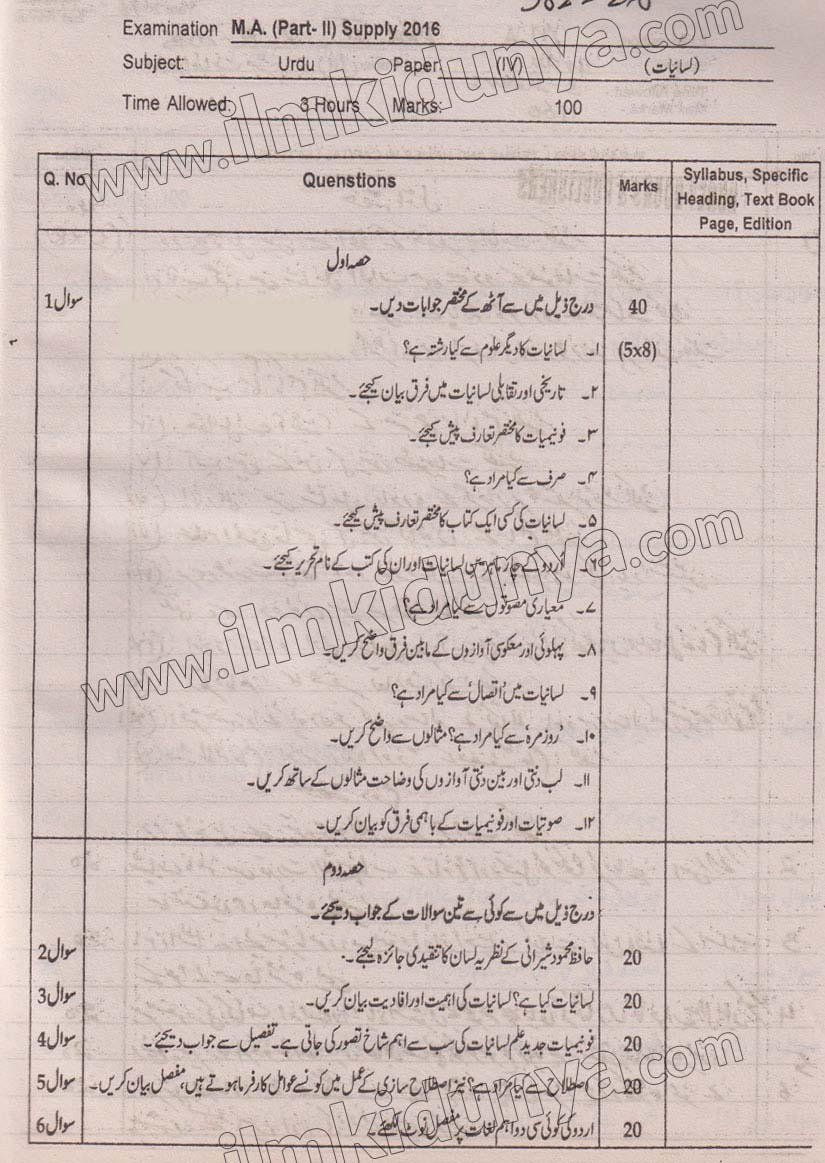 Examination M.A. (Part- II) Supply 2016
Subject: Urdu Paper: (IV) (لسانیات)
Time Allowed: 3 Hours Marks: 100
Q. No Quenstions Marks Syllabus, Specific
Heading, Text Book
Page, Edition
حصہ اول
سوال 1 درج ذیل میں سے آٹھ کے مختصر جوابات دیں۔ 40
۱۔ لسانیات کا دیگر علوم سے کیا رشتہ ہے؟ (5x8)
۲۔ تاریخی اور تقابلی لسانیات میں فرق بیان کیجئے۔
۳۔ فونیمیات کا مختصر تعارف پیش کیجئے۔
۴۔ صرف سے کیا مراد ہے؟
۵۔ لسانیات کی کسی ایک کتاب کا مختصر تعارف پیش کیجئے۔
۶۔ اُردو کے چار ماہرین لسانیات اور ان کی کتب کے نام تحریر کیجئے۔
۷۔ معیاری مصوتوں سے کیا مراد ہے؟
۸۔ پہلوئی اور معکوسی آوازوں کے مابین فرق واضح کریں۔
۹۔ لسانیات میں 'اتصال' سے کیا مراد ہے؟
۱۰۔ 'روزمرہ' سے کیا مراد ہے؟ مثالوں سے واضح کریں۔
۱۱۔ لب دنتی اور بین دنتی آوازوں کی وضاحت مثالوں کے ساتھ کریں۔
۱۲۔ صوتیات اور فونیمیات کے باہمی فرق کو بیان کریں۔
حصہ دوم
درج ذیل میں سے کوئی سے تین سوالات کے جواب دیجئے۔
سوال 2 حافظ محمود شیرانی کے نظریہ لسان کا تنقیدی جائزہ لیجئے۔ 20
سوال 3 لسانیات کیا ہے؟ لسانیات کی اہمیت اور افادیت بیان کریں۔ 20
سوال 4 فونیمیات جدید علم لسانیات کی سب سے اہم شاخ تصور کی جاتی ہے۔ تفصیل سے جواب دیجئے۔ 20
سوال 5 اصطلاح سے کیا مراد ہے؟ نیز اصطلاح سازی کے عمل میں کونسے عوامل کارفرما ہوتے ہیں، مفصل بیان کریں۔ 20
سوال 6 اردو کی کوئی سی دو اہم لغات پر مفصل نوٹ لکھئے۔ 20
www.ilmkidunya.com
www.ilmkidunya.com
www.ilmkidunya.com
www.ilmkidunya.com